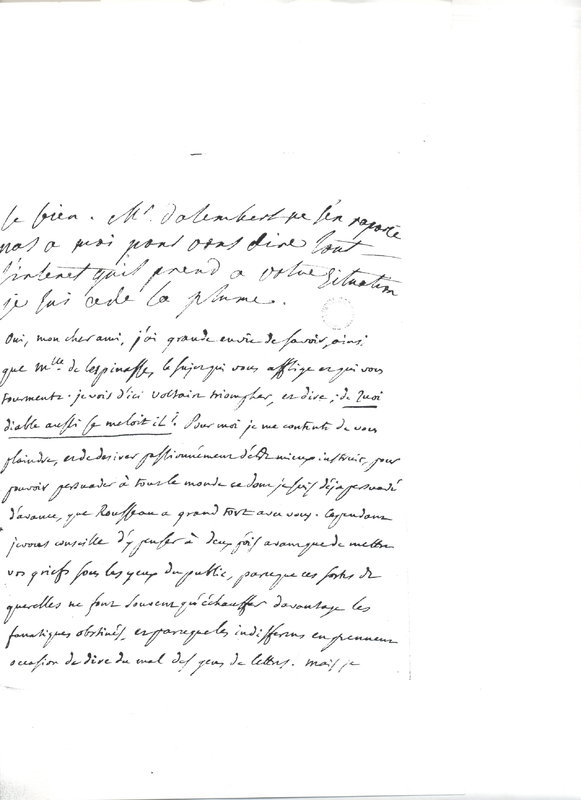 le bien. Mr. dalembert ne s'en raporte
pas a moi pour vous dire tout
l'interet qu'il prend a votre situation
je lui cede la plume.
Oui, mon cher ami, j'ai grande envie de savoir, ainsi
que Mlle de lespinasse, le sujet qui vous afflige et qui vous
tourmente. je vois d'ici voltaire triompher, et dire, de quoi
diable aussi se meloit il? Pour moi je me contente de vous
plaindre, et de desirer passionnément d'être mieux instruit, pour
pouvoir persuader à tout le monde ce dont je suis déja persuadé
d'avance, que Rousseau a grand tort avec vous. Cependant
je vous conseille d'y penser à deux fois avant que de mettre
vos griefs sous les yeux du public, parceque ces sortes de
querelles ne font souvent qu'échauffer davantage les
fanatiques obstinés, et parceque les indifferens en prennent
occasion de dire du mal des gens de lettres. mais je